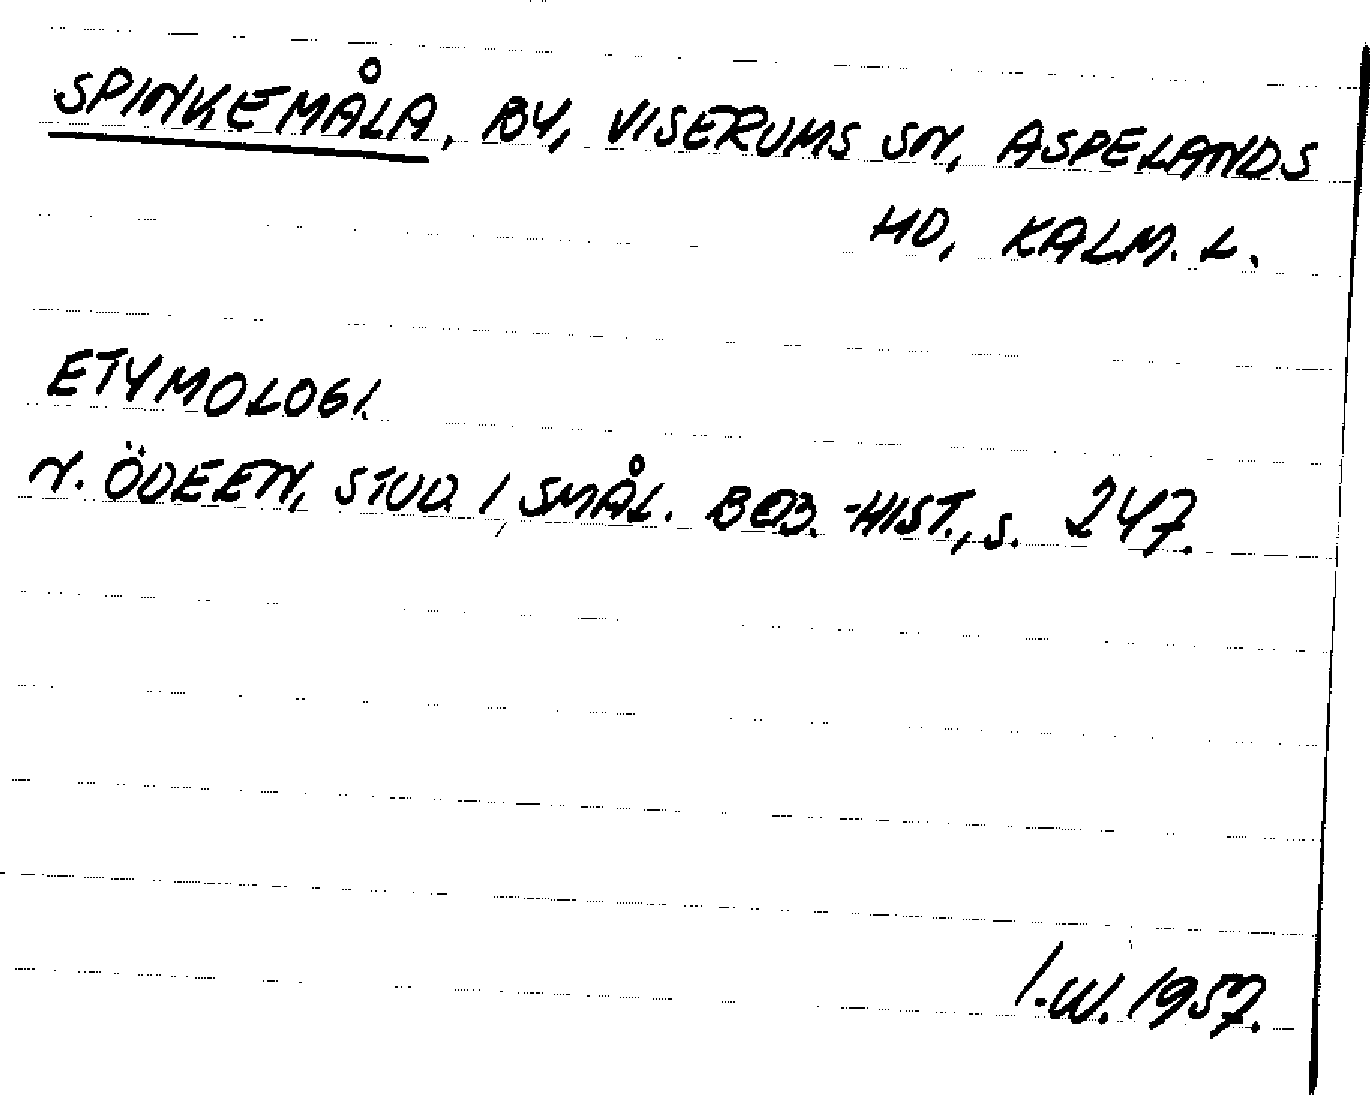 SPINKEMÅLA, BY, VISERUMS SN, ASPELANDS
HD, KALM. L.
ETYMOLOGI.
N. ÖDEEN, STUD. I SMÅL. BEB.-HIST., S. 247.
I.W. 1957.